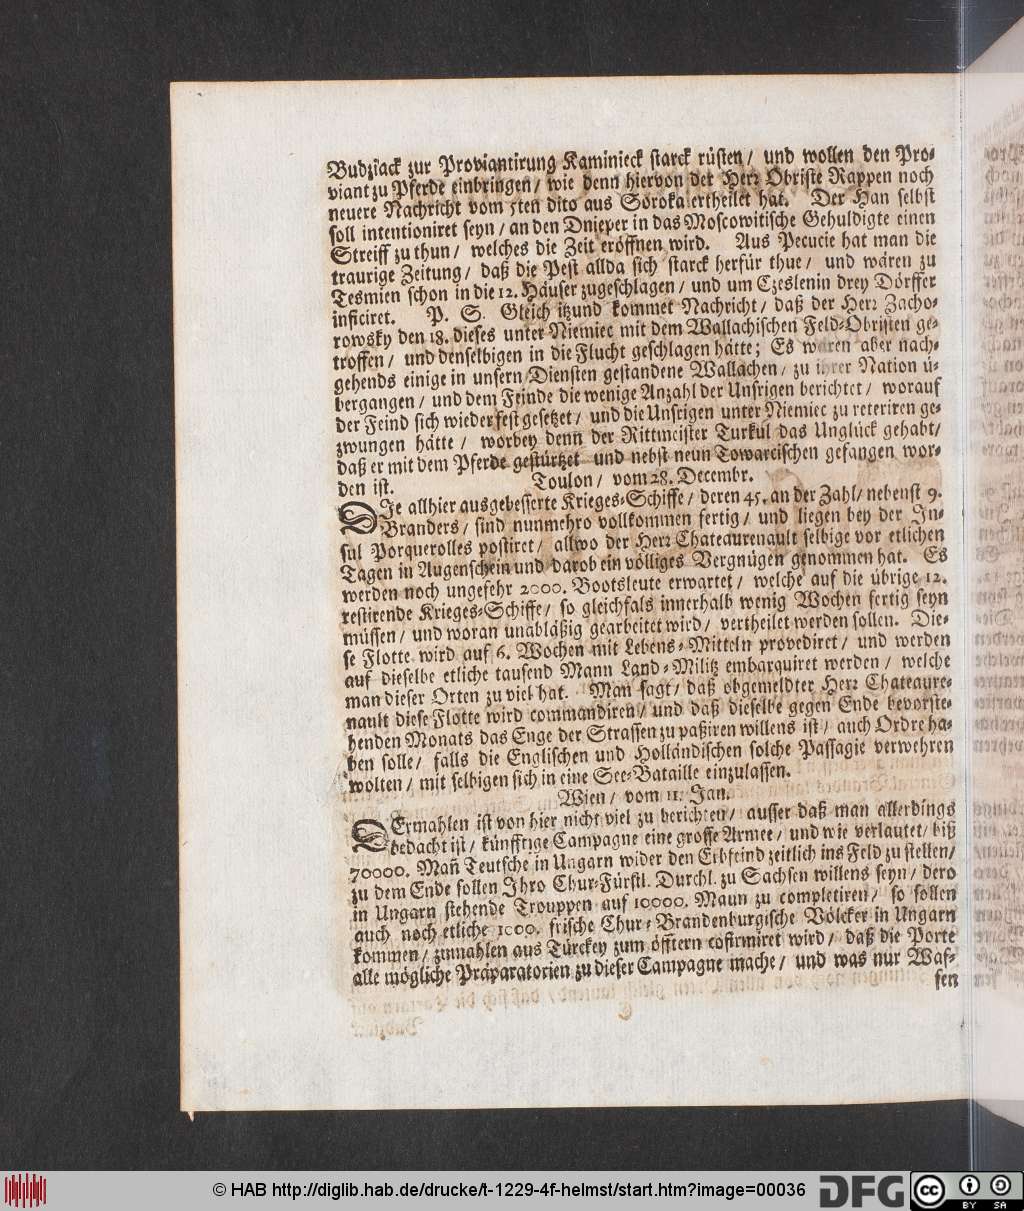 Budziack zur Proviantirung Kaminieck starck rüsten / und wollen den Pro-
viant zu Pferde einbringen / wie denn hiervon der Herr Obriste Rappen noch
neuere Nachricht vom 5ten dito aus Soroka ertheilet hat. Der Han selbst
soll intentioniret seyn / an den Dnieper in das Moscowitische Gehuldigte einen
Streiff zu thun / welches die Zeit eröffnen wird. Aus Pecucie hat man die
traurige Zeitung / daß die Pest allda sich starck herfür thue / und wären zu
Tesmien schon in die 12. Häuser zugeschlagen / und um Czeslenin drey Dörffer
inficiret. P. S. Gleich itzund kommet Nachricht / daß der Herr Zacho-
rowsky den 18. dieses unter Niemiec mit dem Wallachischen Feld-Obristen ge-
troffen / und denselbigen in die Flucht geschlagen hätte; Es waren aber nach-
gehends einige in unsern Diensten gestandene Wallachen / zu ihrer Nation ü-
bergangen / und dem Feinde die wenige Anzahl der Unsrigen berichtet / worauf
der Feind sich wieder fest gesetzet / und die Unsrigen unter Niemiec zu reteriren ge-
zwungen hätte / worbey denn der Rittmeister Turkul das Unglück gehabt /
daß er mit dem Pferde gestürtzet und nebst neun Towarcischen gefangen wor-
den ist. Toulon / vom 28. Decembr.
DIe allhier ausgebesserte Krieges-Schiffe / deren 45. an der Zahl / nebenst 9.
Branders / sind nunmehro vollkommen fertig / und liegen bey der In-
sul Porquerolles postiret / allwo der Herr Chateaurenault selbige vor etlichen
Tagen in Augenschein und darob ein völliges Vergnügen genommen hat. Es
werden noch ungefehr 2000. Bootsleute erwartet / welche auf die übrige 12.
restirende Krieges-Schiffe / so gleichfals innerhalb wenig Wochen fertig seyn
müssen / und woran unabläßig gearbeitet wird / vertheilet werden sollen. Die-
se Flotte wird auf 6. Wochen mit Lebens-Mitteln provediret / und werden
auf dieselbe etliche tausend Mann Land-Militz embarquiret werden / welche
man dieser Orten zu viel hat. Man sagt / daß obgemeldter Herr Chateaure-
nault diese Flotte wird commandiren / und daß dieselbe gegen Ende bevorste-
henden Monats das Enge der Strassen zu paßiren willens ist / auch Ordre ha-
ben solle / falls die Englischen und Holländischen solche Passagie verwehren
wolten / mit selbigen sich in eine See-Bataille einzulassen.
Wien / vom 11. Jan.
DErmahlen ist von hier nicht viel zu berichten / ausser daß man allerdings
bedacht ist / künfftige Campagne eine grosse Armee / und wie verlautet / biß
70000. Mañ Teutsche in Ungarn wider den Erbfeind zeitlich ins Feld zu stellen /
zu dem Ende sollen Ihro Chur-Fürstl. Durchl. zu Sachsen willens seyn / dero
in Ungarn stehende Trouppen auf 10000. Maun zu completiren / so sollen
auch noch etliche 1000. frische Chur-Brandenburgische Völcker in Ungarn
kommen / zumahlen aus Türckey zum öfftern cofirmiret wird / daß die Porte
alle mögliche Präparatorien zu dieser Campagne mache / und was nur Waf-
fen
© HAB http://diglib.hab.de/drucke/t-1229-4f-helmst/start.htm?image=00036
DFG
cc
BY SA